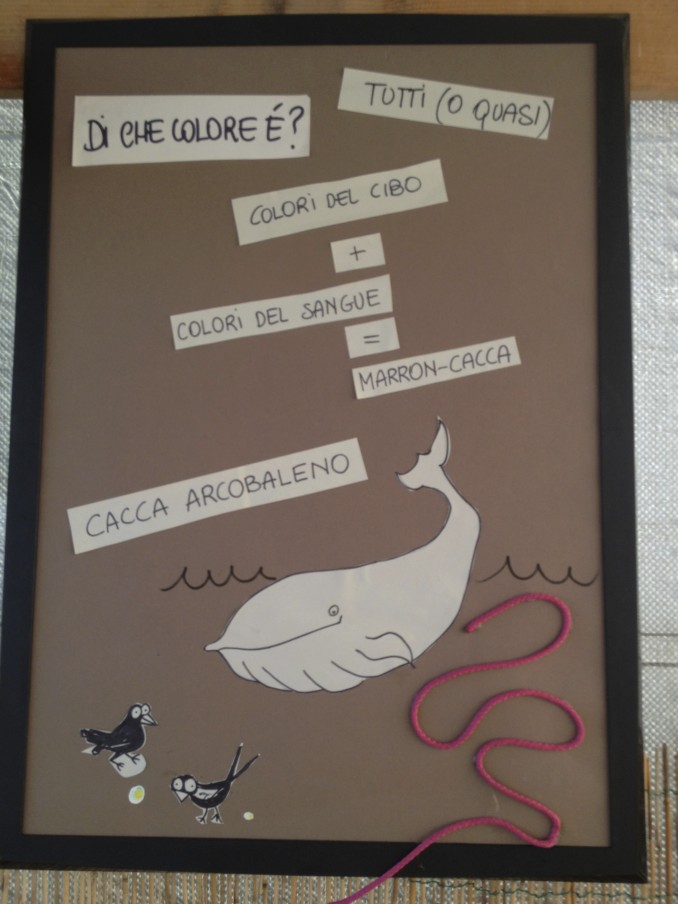 Di CHE COLORE É?
TUTTi (O QUASI)
COLORi DEL CIBO
+
COLORi DEL SANGUE
=
MARRON-CACCA
CACCA ARCOBALENO